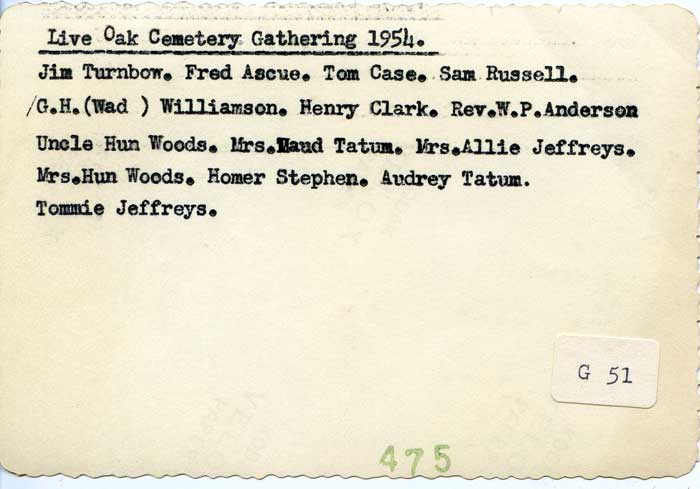 Live Oak Cemetery Gathering 1954.
Jim Turnbow. Fred Ascue. Tom Case. Sam Russell.
/G.H.(Wad ) Williamson. Henry Clark. Rev.W.P.Anderson
Uncle Hun Woods. Mrs.Maud Tatum. Mrs.Allie Jeffreys.
Mrs.Hun Woods. Homer Stephen. Audrey Tatum.
Tommie Jeffreys.
G 51
475